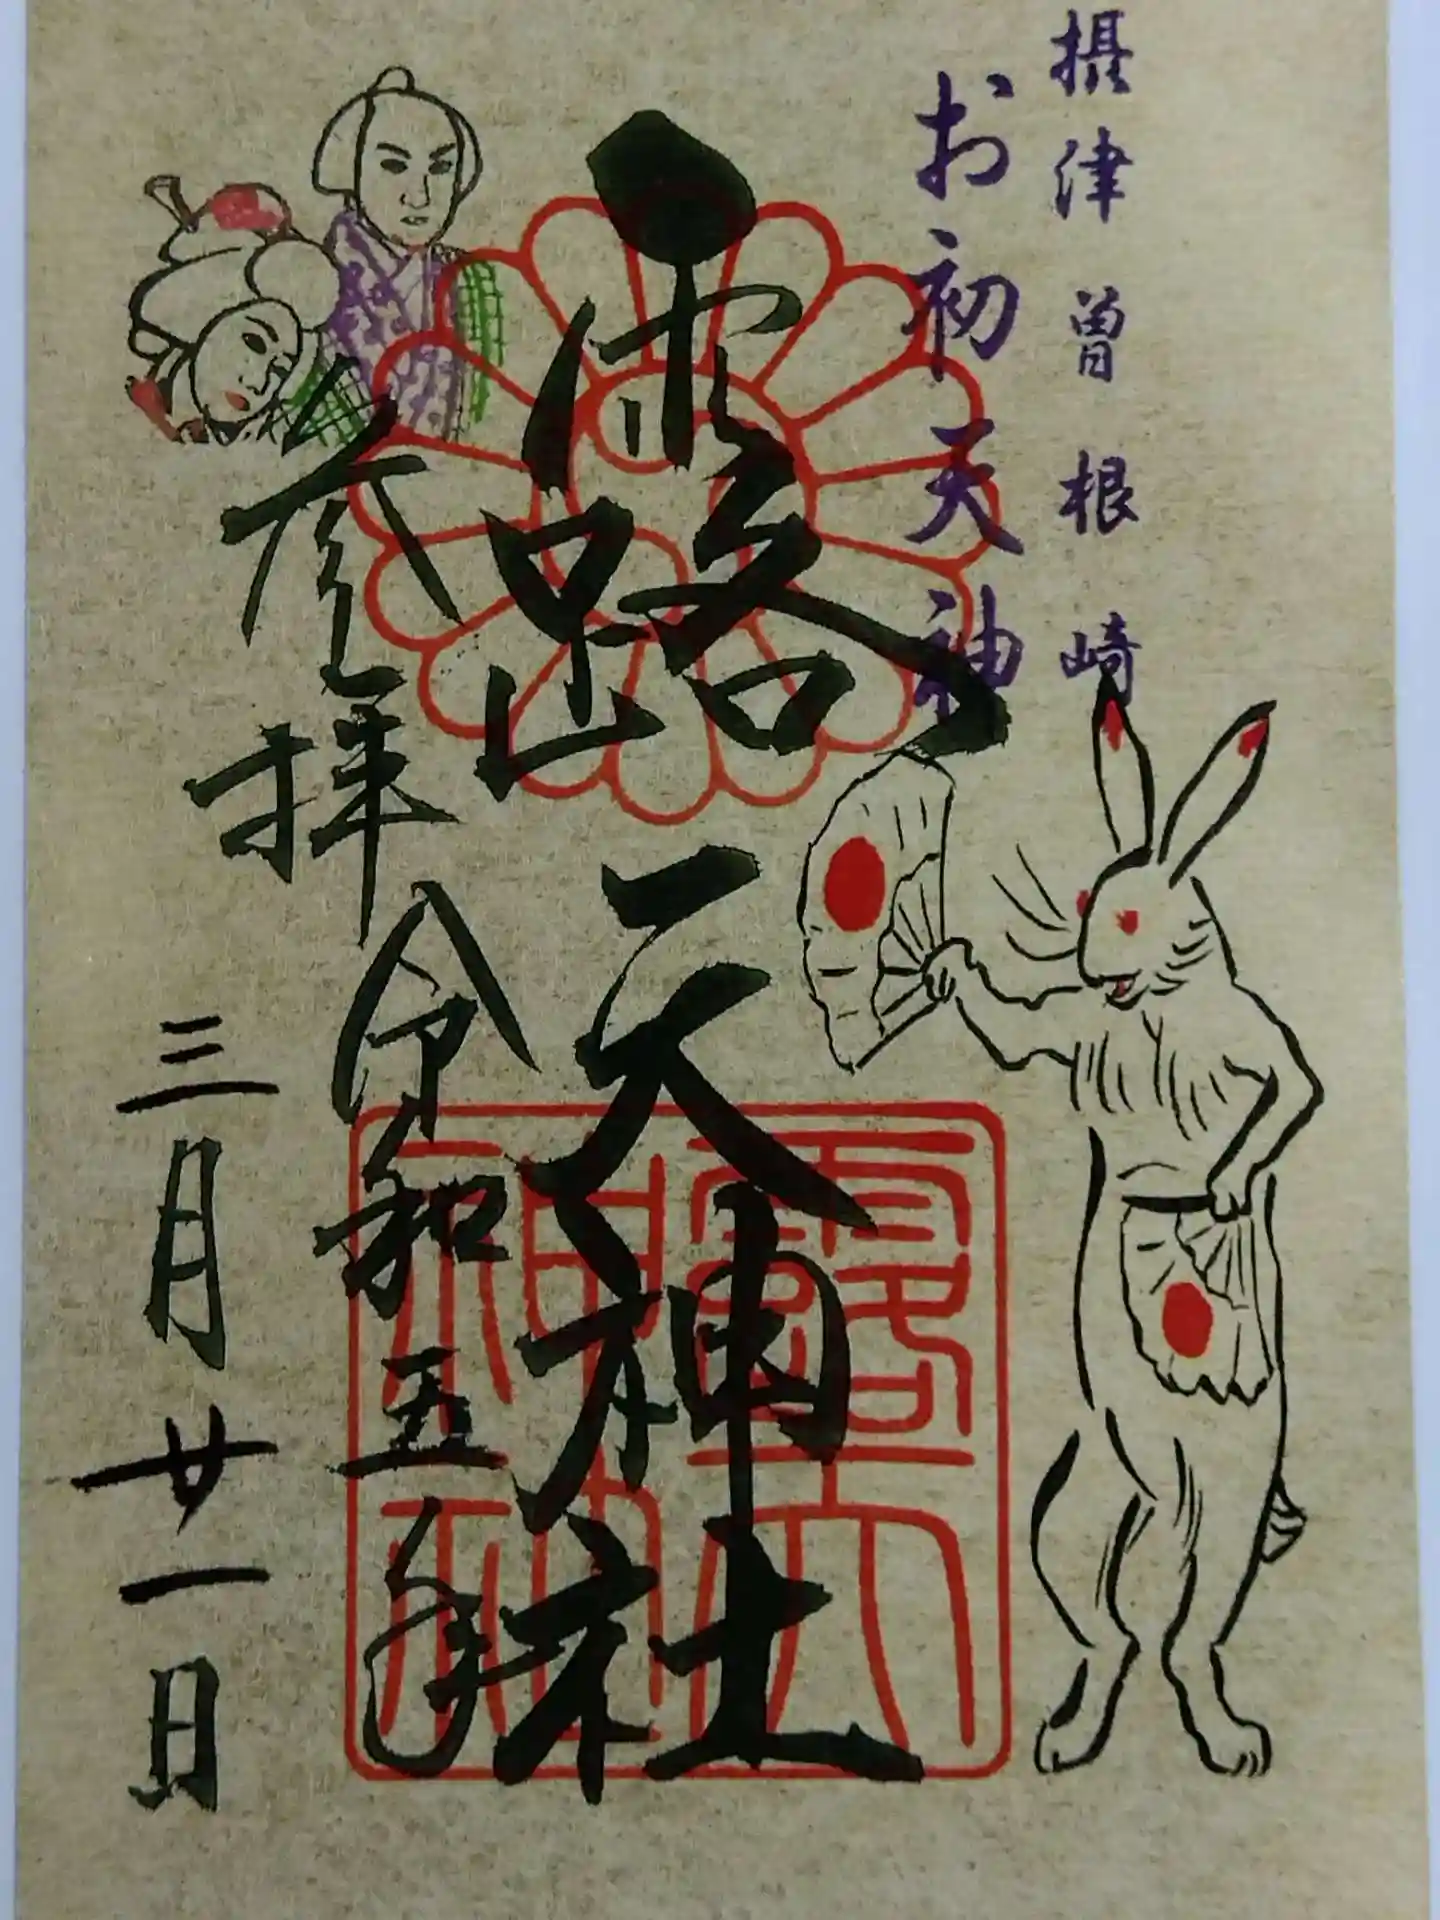 摂津曽根崎
お初天神
露天神社
参拝
令和五年
三月廿一日
露天神社